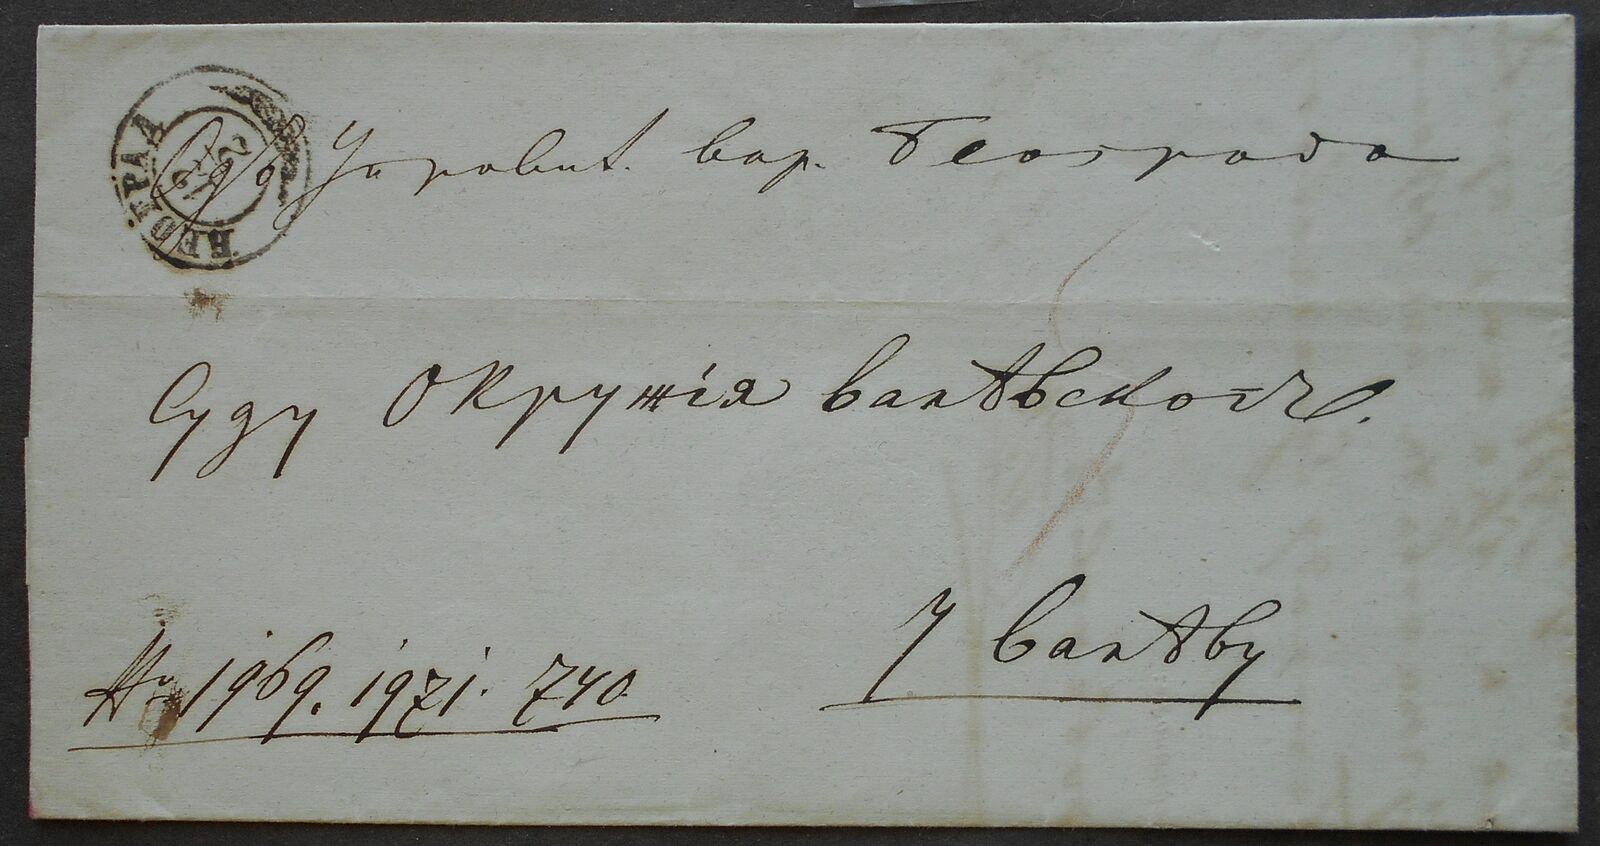 БЕОГРАД
Управит. вар. Београда
Суду Окружія ваљѣвскогъ.
У Ваљѣву
Но 1969. 1971. 740